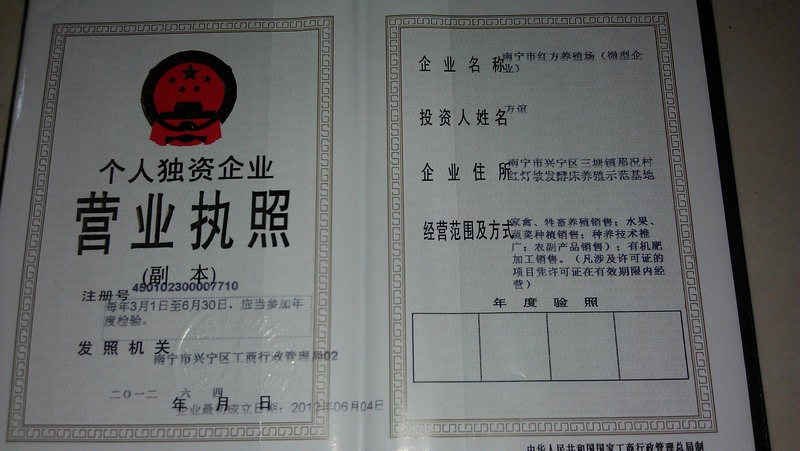 个人独资企业
营业执照
(副 本)
注册号 450102300007710
每年3月1日至6月30日，应当参加年
度检验。
发照机关
南宁市兴宁区工商行政管理局02
二〇一二 六 四
年 月 日
企业最初成立日期：2012年06月04日
企业名称 南宁市红方养殖场（微型企
业）
投资人姓名 方谊
企业住所 南宁市兴宁区三塘镇那况村
红灯坡发酵床养殖示范基地
经营范围及方式 家禽、牲畜养殖销售；水果、
蔬菜种植销售；种养技术推
广；农副产品销售；）有机肥
加工销售。（凡涉及许可证的
项目凭许可证在有效期限内经
营）
年度验照
中华人民共和国国家工商行政管理总局制